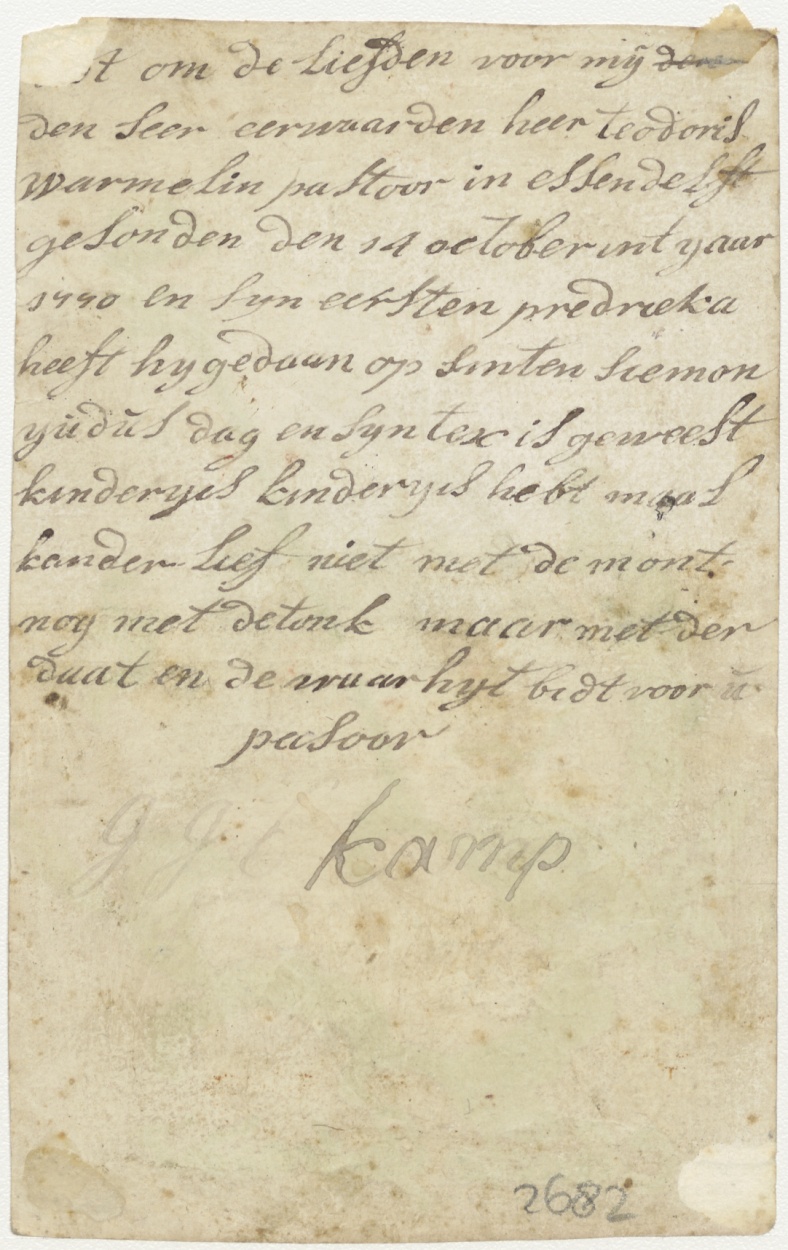 om de liefden voor mÿ
den seer eerwaarden heer teodoris
warmelin pastoor in essendelft
gesonden den 14 october int yaar
1770 en syn eersten predrieka
heeft hy gedaan op sinten siemon
yudus dag en syn tex is geweest
kinderyes kinderyes hebt maal
kander lief niet met de mont
nog met de tonk maar met der
daat en de waarhyt bidt voor u
pasoor
g g kamp
2682